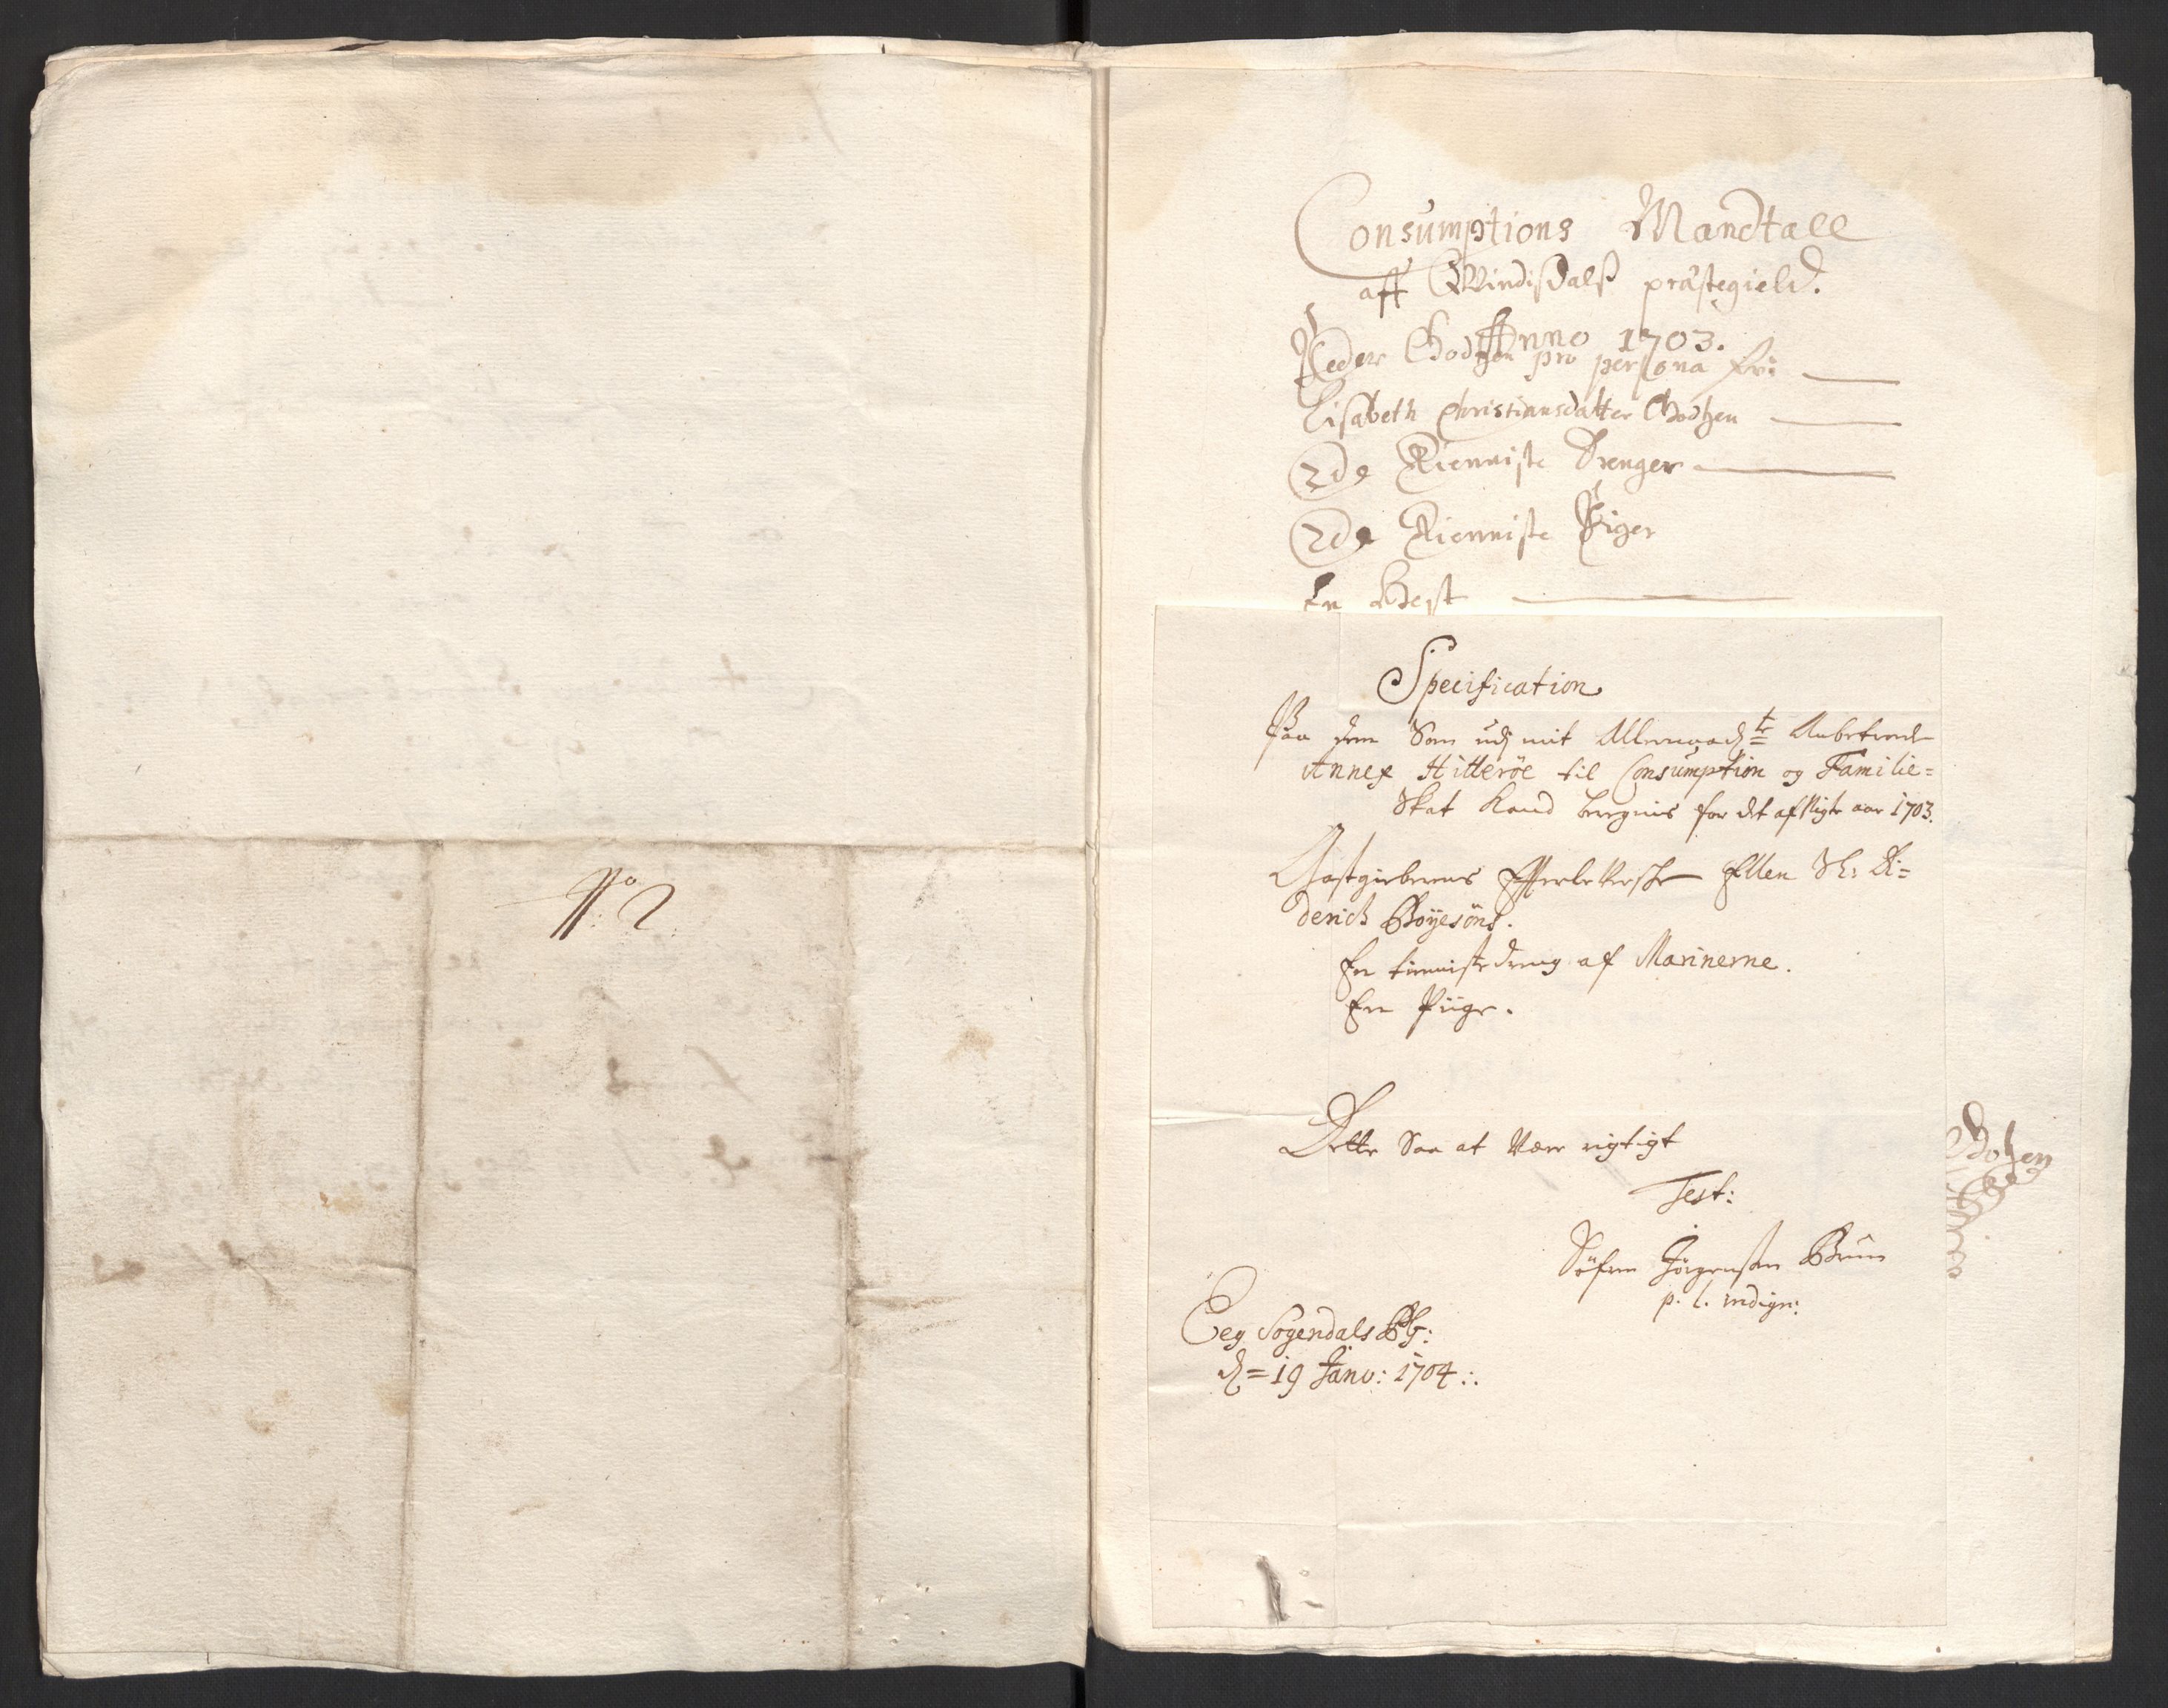 No 2
Consumptions Mandtall
aff Qvindisdalß præstegield.
Anno 1703.
Peder Godtzen pro persona fri
Elisabeth Christiansdatter Godtzen
2de Tienniste Drenger
2de Tienniste Piger
En Hest
Specification
Paa dem Som udj mit Allernaadste Anbetroede
Annex Hitterøe til Consumption og Familie=
Skat kand beregnis for det afvigte aar 1703.
Gastgieberens Efterleverske Ellen Sl: Di=
derich Boÿesöns.
En tienniste dreng af Marinerne.
En Piige.
Dette Saa at være rigtigt
Test:
Söfren Jörgensen Bruun
p. l. indign:
Eeg Sogendals PG:
d= 19 Janv: 1704.